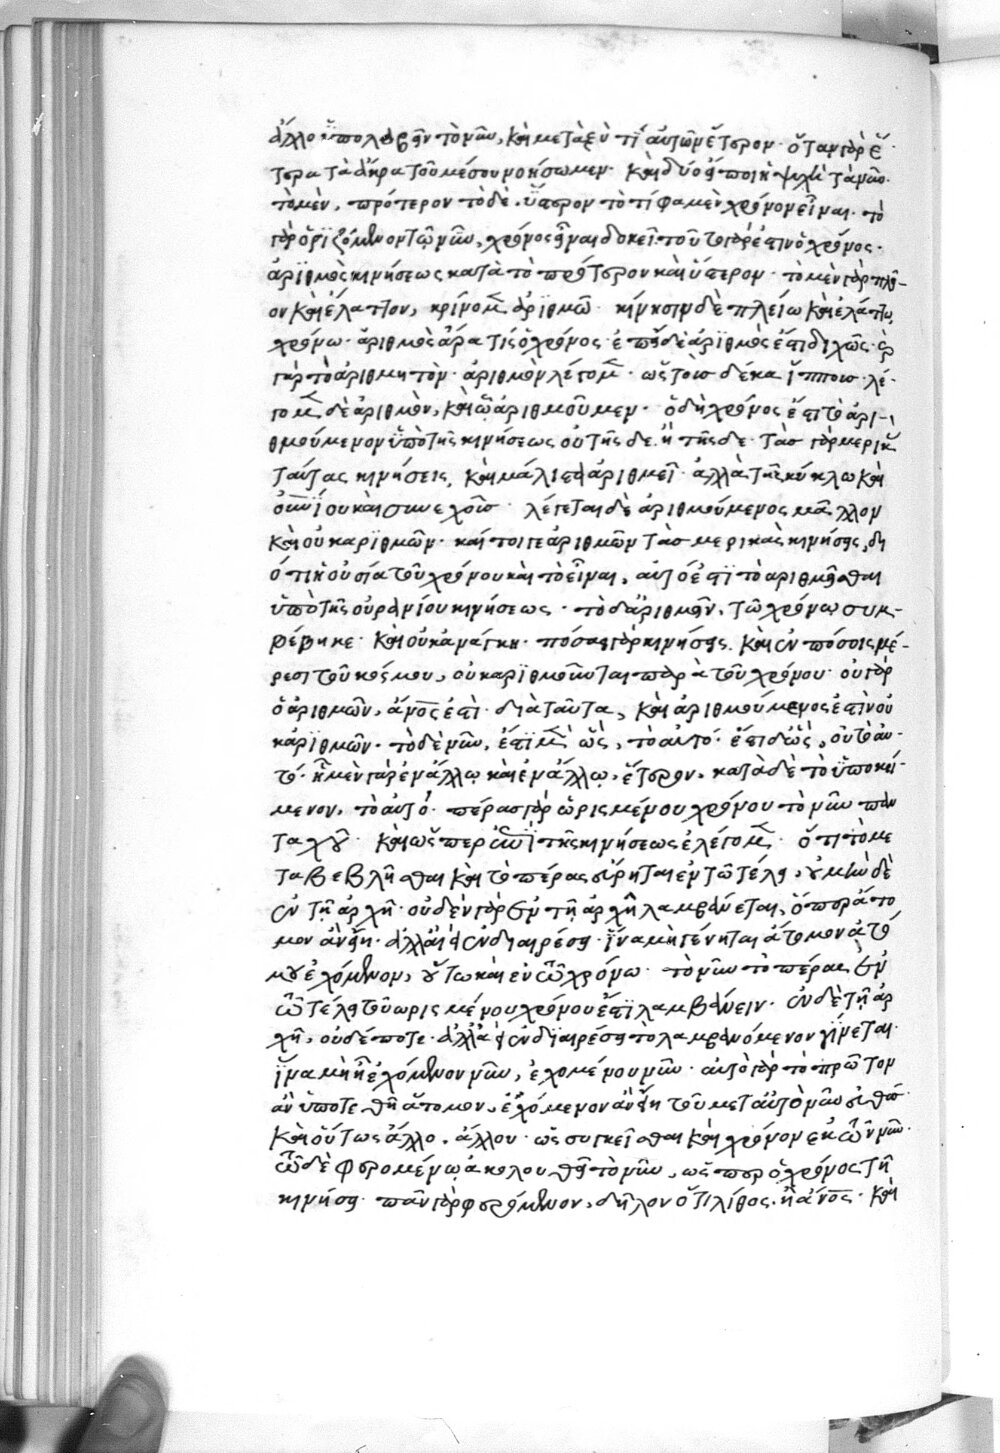 ἄλλο ὑπολαβεῖν τὸ νῦν, καὶ μεταξύ τι αὐτῶν ἕτερον· ὅταν γὰρ ἕ-
τερα τὰ ἄκρα τοῦ μέσου νοήσωμεν· καὶ δύο εἴποι ἡ ψυχὴ τὰ νῦν·
τὸ μὲν, πρότερον τὸ δὲ, ὕστερον τότε φαμὲν χρόνον εἶναι· τὸ
γὰρ ὁριζόμενον τῷ νῦν, χρόνος εἶναι δοκεῖ· τοῦτο γάρ ἐστιν ὁ χρόνος·
ἀριθμὸς κινήσεως κατὰ τὸ πρότερον καὶ ὕστερον· τὸ μὲν γὰρ πλεῖ-
ον καὶ ἔλαττον, κρίνομεν ἀριθμῷ· κίνησιν δὲ πλείω καὶ ἐλάττω,
χρόνῳ· ἀριθμὸς ἄρα τίς ὁ χρόνος· ἐπεὶ δὲ ἀριθμὸς ἐστι διχῶς· καὶ
γὰρ τὸ ἀριθμητὸν· ἀριθμὸν λέγομεν· ὡς τοὺς δέκα ἵππους· λέ-
γομεν δὲ ἀριθμὸν, καὶ ᾧ ἀριθμοῦμεν· ὁ δὴ χρόνος ἐστὶ τὸ ἀρι-
θμούμενον ὑπὸ τῆς κινήσεως οὐ τῆσδε ἢ τῆσδε· τὰς γὰρ μερικὰς
ταύτας κινήσεις, καὶ μάλιστα ἀριθμεῖ· ἀλλὰ τῆς κύκλῳ καὶ
οὐρανίου καὶ συνεχοῦς· λέγεται δὲ ἀριθμούμενος μᾶλλον
καὶ οὐκ ἀριθμῶν· καίτοιγε ἀριθμῶν τὰς μερικὰς κινήσεις, δι
ότι ἡ οὐσία τοῦ χρόνου καὶ τὸ εἶναι, αὐτό ἐστι τὸ ἀριθμεῖσθαι
ὑπὸ τῆς οὐρανίου κινήσεως· τὸ δ' ἀριθμεῖν, τῷ χρόνῳ συμ-
βέβηκε· καὶ οὐκ ἀνάγκη· πόσαι γὰρ κινήσεις καὶ ἐν πόσοις μέ-
ρεσι τοῦ κόσμου, οὐκ ἀριθμοῦνται παρὰ τοῦ χρόνου· οὐ γὰρ
ὁ ἀριθμῶν, ἄνος ἐστί· διὰ ταῦτα, καὶ ἀριθμούμενος ἐστὶν οὐ
κἀριθμῶν· τὸ δὲ νῦν, ἔστι μὲν ὡς, τὸ αὐτό· ἔστι δ' ὡς, οὐ τὸ αὐ-
τό· ᾗ μὲν γὰρ ἐν ἄλλῳ καὶ ἐν ἄλλῳ, ἕτερον, κατὰ δὲ τὸ ὑποκεί-
μενον, τὸ αὐτό· πέρας γὰρ ὡρισμένου χρόνου τὸ νῦν παν
ταχοῦ· καὶ ὥσπερ ἐπὶ τῆς κινήσεως ἐλέγομεν· ὅτι τὸ με
ταβεβλῆσθαι καὶ τὸ πέρας εἴρηται ἐν τῷ τέλει, οὐ μὴν δὲ
ἐν τῇ ἀρχῇ· οὐδὲν γὰρ ἐν τῇ ἀρχῇ λαμβάνεται, ὅπερ ἄτο
μον ἂν εἴη· ἀλλ' ἀεὶ ἐν διαιρέσει· ἵνα μὴ γένηται ἄτομον ἀτό
μου ἐχόμενον, οὕτω καὶ ἐν τῷ χρόνῳ· τὸ νῦν τὸ πέρας ἐν
τῷ τέλει τοῦ ὡρισμένου χρόνου ἔστι λαμβάνειν· ἐν δὲ τῇ ἀρ
χῇ, οὐδέποτε· ἀλλ' ἀεὶ ἐν διαιρέσει τὸ λαμβανόμενον γίνεται·
ἵνα μὴ ᾖ ἐχόμενον νῦν, ἐχομένου νῦν· αὐτὸ γὰρ τὸ πρῶτον
ἂν ὑποτεθῇ ἄτομον, ἐχόμενον ἂν εἴη τοῦ μετ' αὐτὸ νῦν εὐθύς·
καὶ οὕτως ἄλλο, ἄλλου· ὡς συγκεῖσθαι καὶ χρόνον ἐκ τῶν νῦν·
τῷ δὲ φερομένῳ ἀκολουθεῖ τὸ νῦν, ὥσπερ ὁ χρόνος τῇ
κινήσει· πᾶν γὰρ φερόμενον, δῆλον ὅτι λίθος, ἢ ἄνος· καὶ